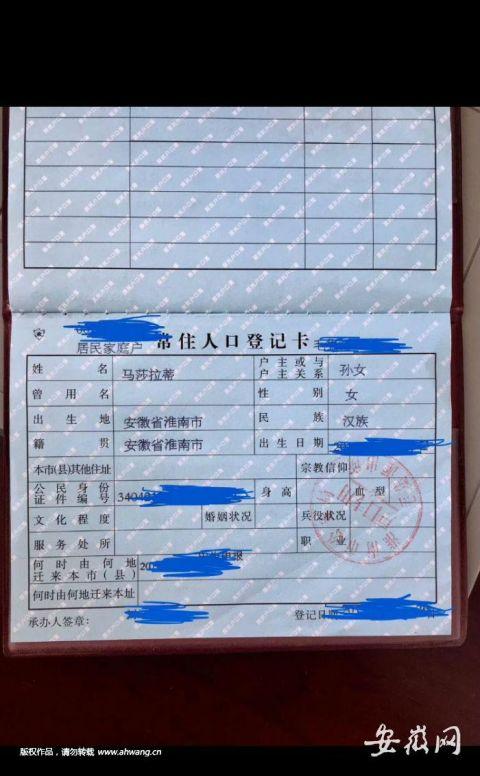 居民家庭户
常住人口登记卡
姓 名 马莎拉蒂 户主或与户主关系 孙女
曾用名 性别 女
出生地 安徽省淮南市 民族 汉族
籍贯 安徽省淮南市 出生日期
本市(县)其他住址 宗教信仰
公民身份证件编号 34040 身高 血型
文化程度 婚姻状况 兵役状况
服务处所 职业
何时由何地迁来本市(县) 20
何时由何地迁来本址
承办人签章: 登记日期
版权作品,请勿转载 www.ahwang.cn
安徽网